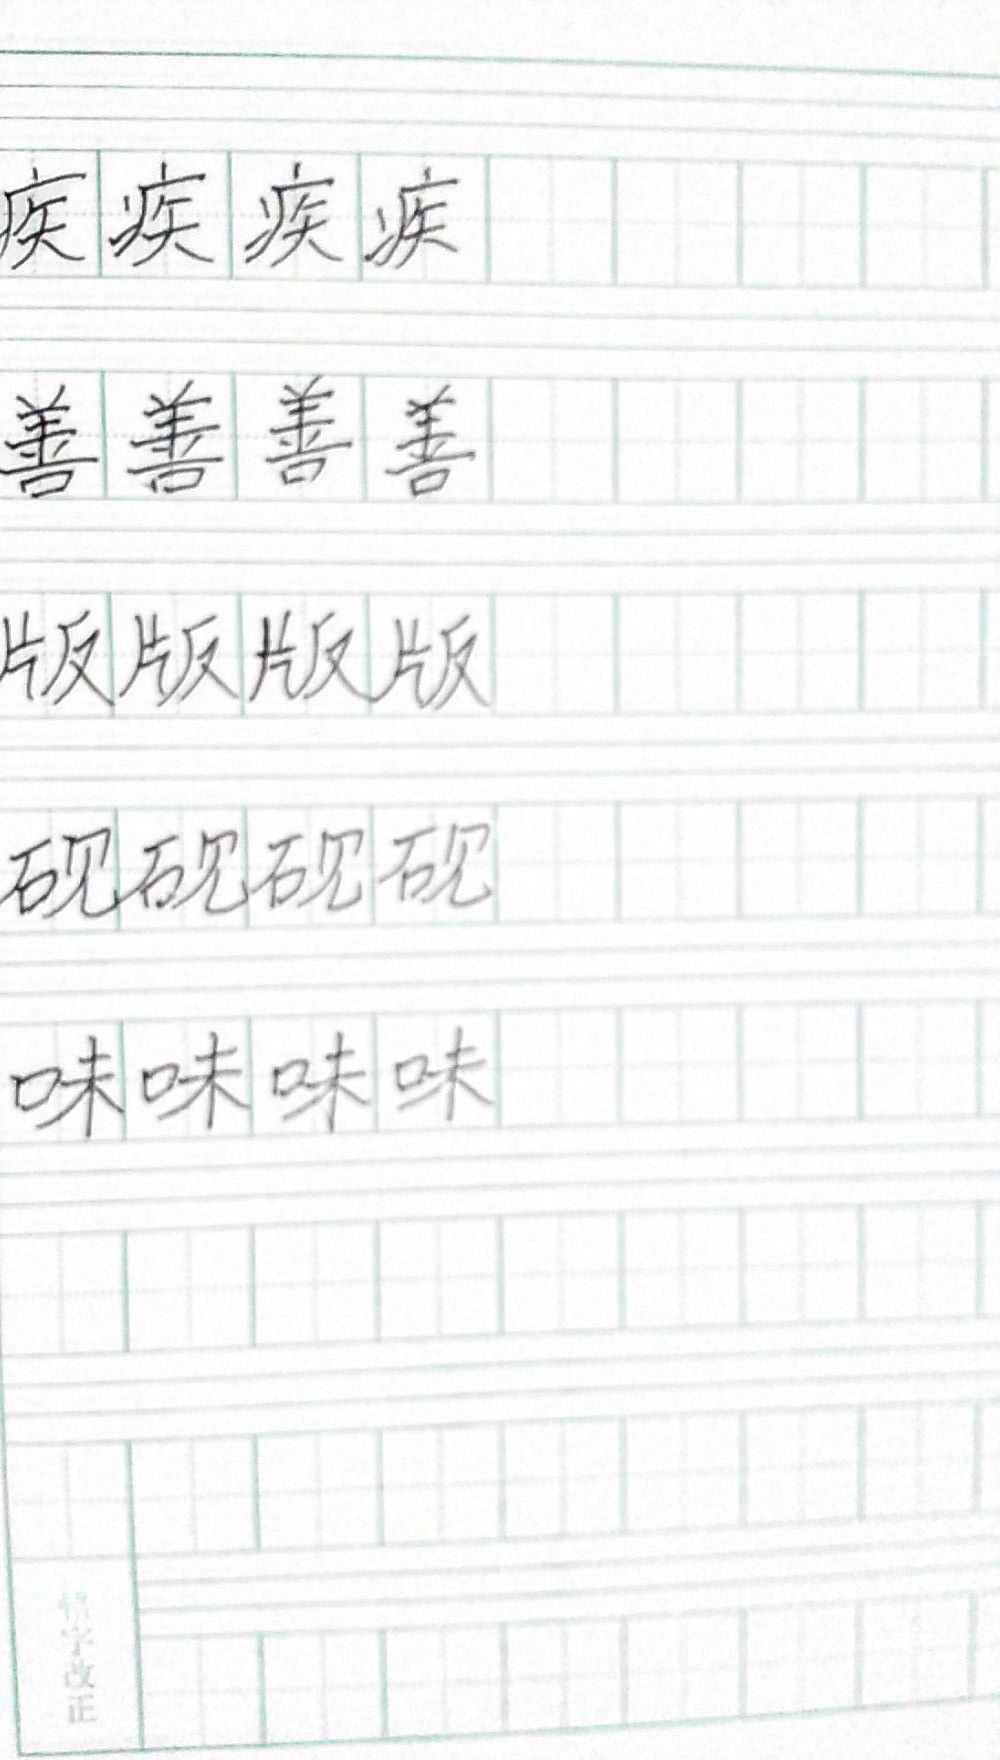 疾疾疾疾
善善善善
版版版版
砚砚砚砚
味味味味
错字改正